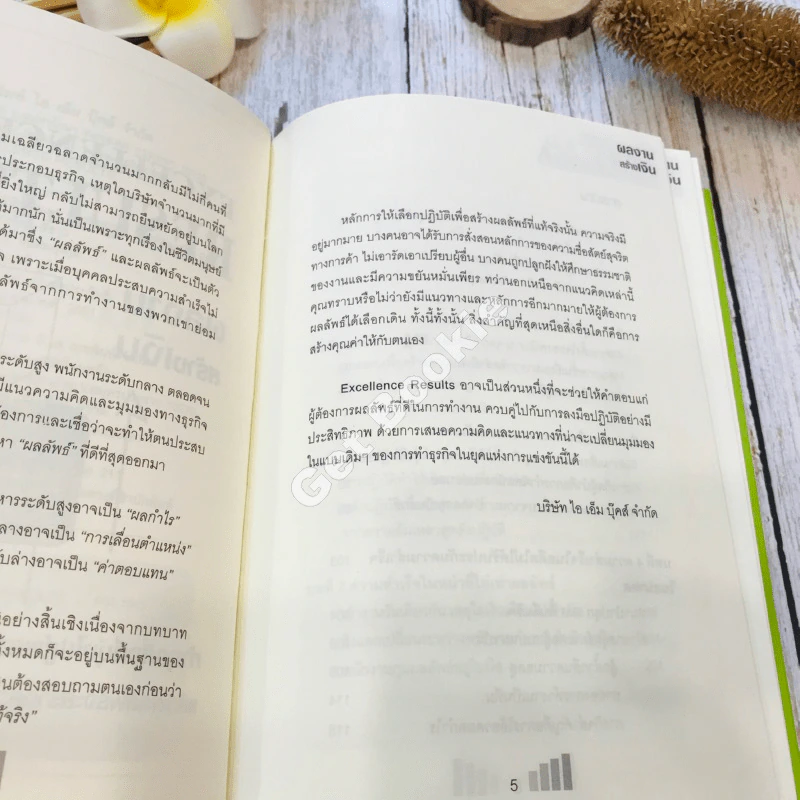 มเฉลียวฉลาดจำนวนมากกลับมีไม่กี่คนที่
ะประกอบธุรกิจ เหตุใดบริษัทจำนวนมากที่มี
ยิ่งใหญ่ กลับไม่สามารถยืนหยัดอยู่บนโลก
ด้มากนัก นั่นเป็นเพราะทุกเรื่องในชีวิตมนุษย์
ด้มาซึ่ง “ผลลัพธ์” และผลลัพธ์จะเป็นตัว
จ เพราะเมื่อบุคคลประสบความสำเร็จไม่
ลัพธ์จากการทำงานของพวกเขาย่อม
ระดับสูง พนักงานระดับกลาง ตลอดจน
มีแนวความคิดและมุมมองทางธุรกิจ
องการและเชื่อว่าจะทำให้ตนประสบ
หา “ผลลัพธ์” ที่ดีที่สุดออกมา
หารระดับสูงอาจเป็น “ผลกำไร”
ลางอาจเป็น “การเลื่อนตำแหน่ง”
บล่างอาจเป็น “ค่าตอบแทน”
อย่างสิ้นเชิงเนื่องจากบทบาท
ั้งหมดก็จะอยู่บนพื้นฐานของ
นต้องสอบถามตนเองก่อนว่า
ท้จริง”
ผลงาน
สร้างเงิน
าน
เงิน
หลักการให้เลือกปฏิบัติเพื่อสร้างผลลัพธ์ที่แท้จริงนั้น ความจริงมี
อยู่มากมาย บางคนอาจได้รับการสั่งสอนหลักการของความซื่อสัตย์สุจริต
ทางการค้า ไม่เอารัดเอาเปรียบผู้อื่น บางคนถูกปลูกฝังให้ศึกษาธรรมชาติ
ของงานและมีความขยันหมั่นเพียร ทว่านอกเหนือจากแนวคิดเหล่านี้
คุณทราบหรือไม่ว่ายังมีแนวทางและหลักการอีกมากมายให้ผู้ต้องการ
ผลลัพธ์ได้เลือกเดิน ทั้งนี้ทั้งนั้น สิ่งสำคัญที่สุดเหนือสิ่งอื่นใดก็คือการ
สร้างคุณค่าให้กับตนเอง
Excellence Results อาจเป็นส่วนหนึ่งที่จะช่วยให้คำตอบแก่
ผู้ต้องการผลลัพธ์ที่ดีในการทำงาน ควบคู่ไปกับการลงมือปฏิบัติอย่างมี
ประสิทธิภาพ ด้วยการเสนอความคิดและแนวทางที่น่าจะเปลี่ยนมุมมอง
ในแบบเดิมๆ ของการทำธุรกิจในยุคแห่งการแข่งขันนี้ได้
บริษัท ไอ เอ็ม บุ๊คส์ จำกัด
Get Bookie
5